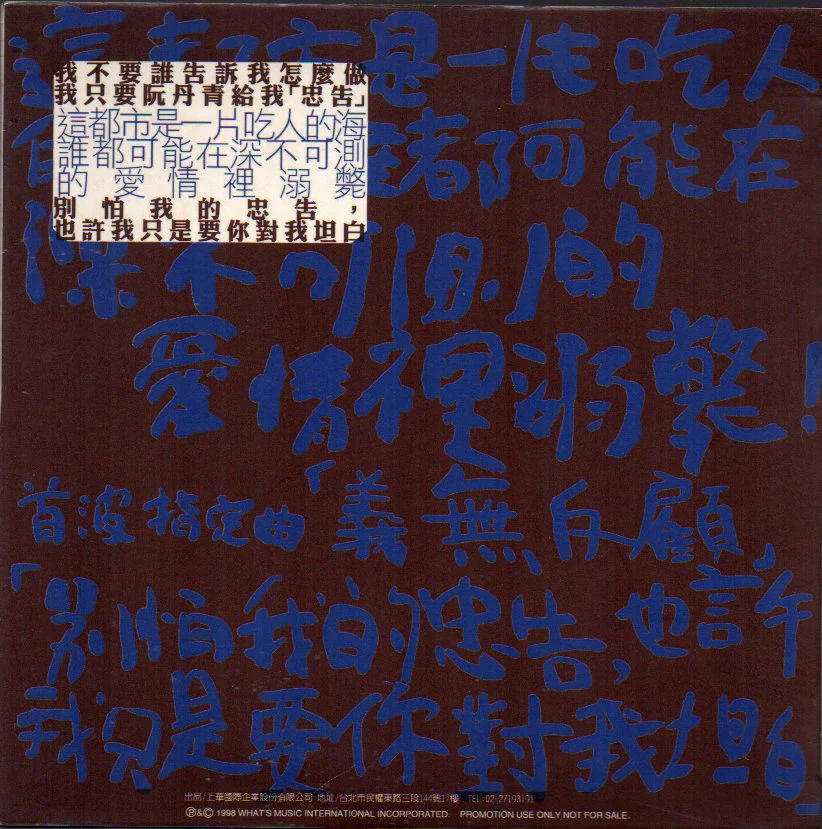 我不要誰告訴我怎麼做
我只要阮丹青給我「忠告」
這都市是一片吃人的海
誰都可能在深不可測
的愛情裡溺斃
別怕我的忠告，
也許我只是要你對我坦白
這都市是一片吃人
的海 誰都可能在
深不可測的
愛情裡溺斃!
首波指定曲「義無反顧」
「別怕我的忠告，也許
我只是要你對我坦白」
出品/上華國際企業股份有限公司 地址/台北市民權東路三段144號17樓 TEL:02-27193191
Ⓟ&© 1998 WHAT'S MUSIC INTERNATIONAL INCORPORATED. PROMOTION USE ONLY NOT FOR SALE.